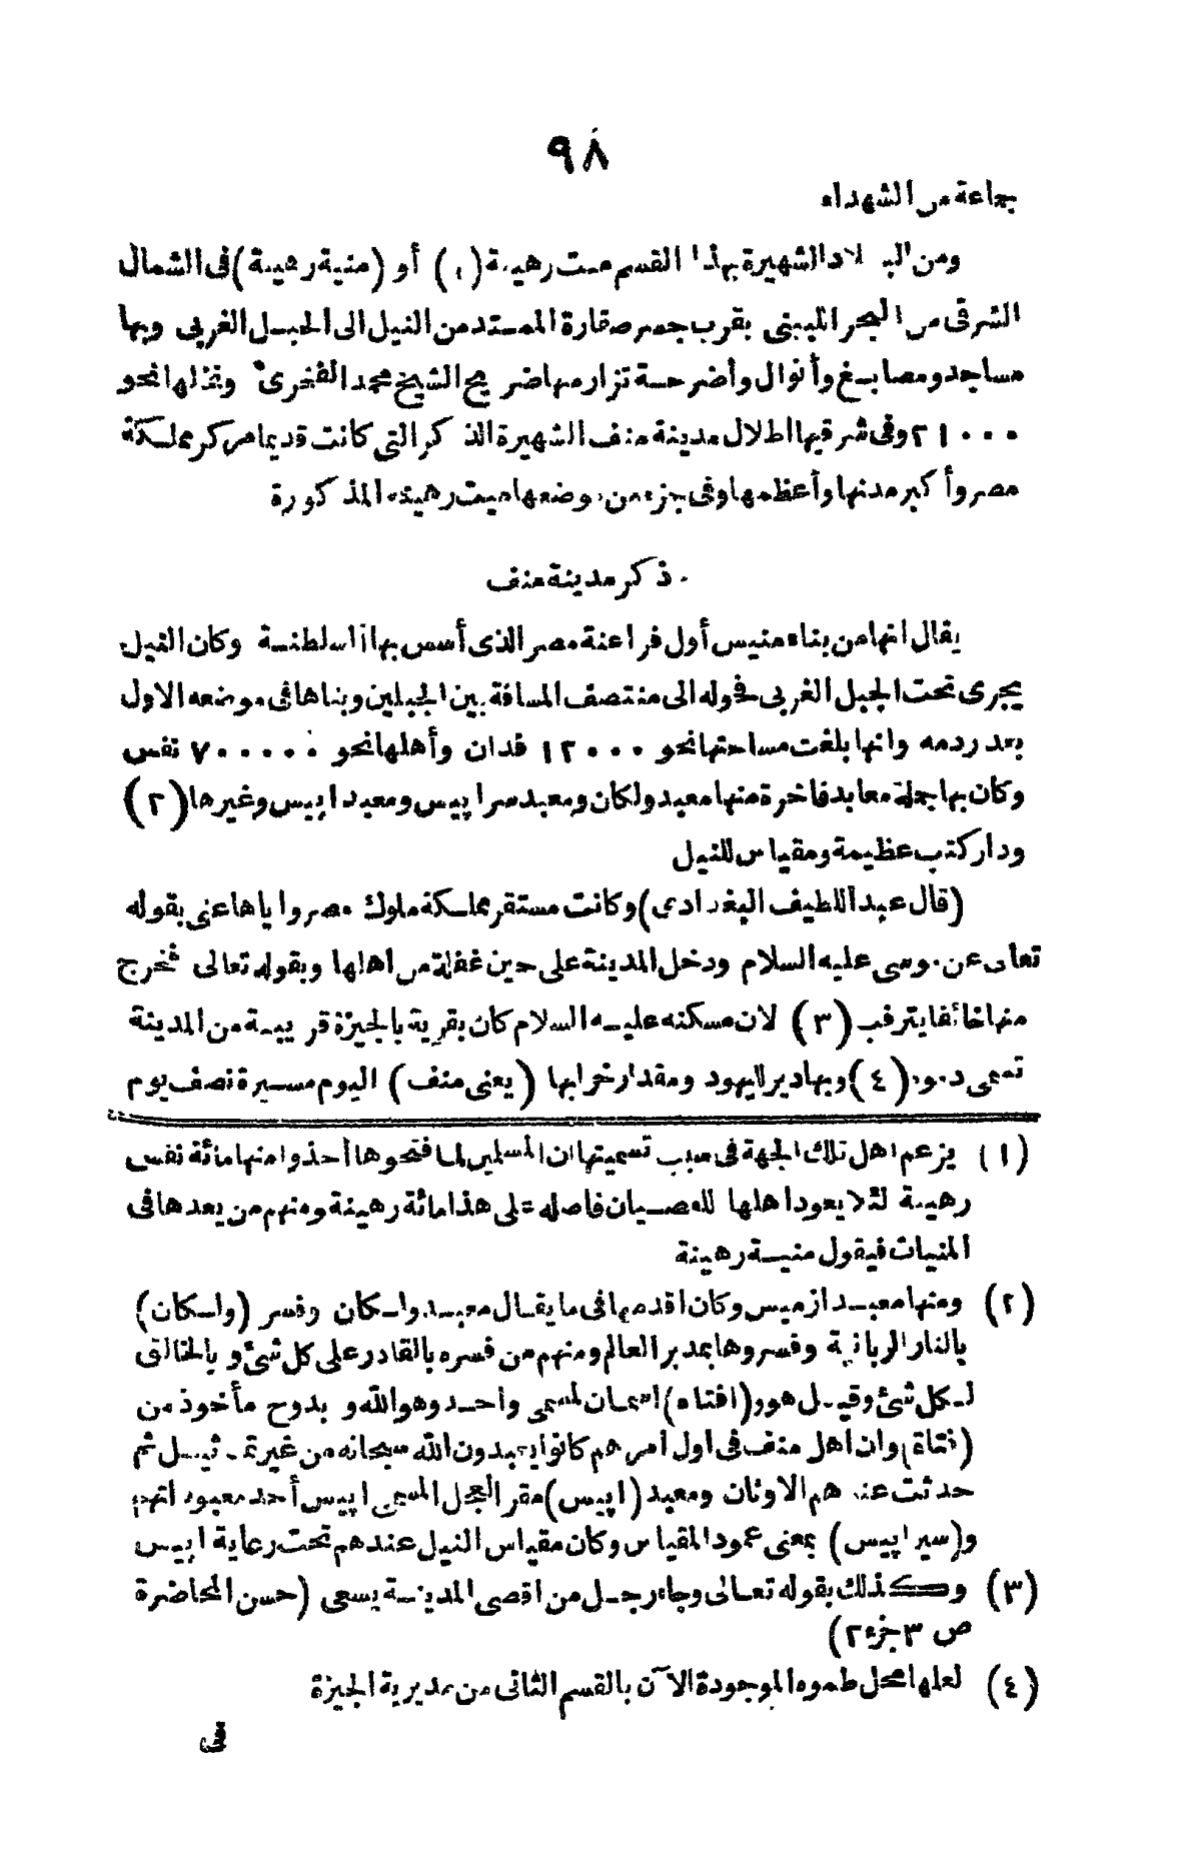 ٩٨
جماعة من الشهداء
ومن البلاد الشهيرة بهذا القسم ميت رهينة (١) أو (منية رهينة) فى الشمال
الشرقى من البحر الليبنى بقرب جسر صقارة الممتد من النيل الى الجبل الغربى وبها
مساجد ومصابغ وأنوال وأضرحة تزار منها ضريح الشيخ محمد الفخرى ونخلها نحو
٢١٠٠٠ وفى شرقيها اطلال مدينة منف الشهيرة الذكر التى كانت قديما مركز مملكة
مصر وأكبر مدنها وأعظمها وفى جزء من موضعها ميت رهينة المذكورة
ذكر مدينة منف
يقال انها من بناء منيس أول فراعنة مصر الذى أسس بها السلطنة وكان النيل
يجرى تحت الجبل الغربى فحوله الى منتصف المسافة بين الجبلين وبناها فى موضعه الاول
بعد ردمه وانها بلغت مساحتها نحو ١٢٠٠٠ فدان وأهلها نحو ٧٠٠٠٠٠ نفس
وكان بها جملة معابد فاخرة منها معبد ولكان ومعبد سراپيس ومعبد اپيس وغيرها (٢)
ودار كتب عظيمة ومقياس للنيل
(قال عبد اللطيف البغدادى) وكانت مستقر مملكة ملوك مصر واياها عنى بقوله
تعالى عن موسى عليه السلام ودخل المدينة على حين غفلة من اهلها وبقوله تعالى فخرج
منها خائفا يترقب (٣) لان مسكنه عليه السلام كان بقرية بالجيزة قريبة من المدينة
تسمى دموه (٤) وبها دير اليهود ومقدار خرابها (يعنى منف) اليوم مسيرة نصف يوم
(١) يزعم اهل تلك الجهة فى سبب تسميتها ان المسلمين لما فتحوها أخذوا منها مائة نفس
رهينة لئلا يعود اهلها للعصيان فاصله على هذا مائة رهينة ومنهم من يعدها فى
المنيات فيقول منية رهينة
(٢) ومنها معبد ازميس وكان اقدمها فى ما يقال معبد ولكان وفسر (ولكان)
بالنار الربانية وفسروها بمدبر العالم ومنهم من فسره بالقادر على كل شئ و بالخالق
لكل شئ وقيل هو و(افتاه) اسمان لمسمى واحد وهو الله و بدوح مأخوذ من
(فتاة) وان اهل منف فى اول أمرهم كانوا يعبدون الله سبحانه من غير تمثيل ثم
حدثت عندهم الاوثان ومعبد (اپيس) مقر العجل المسمى اپيس أحد معبوداتهم
و(سيراپيس) بمعنى عمود المقياس وكان مقياس النيل عندهم تحت رعاية اپيس
(٣) وكذلك بقوله تعالى وجاء رجل من اقصى المدينة يسعى (حسن المحاضرة
ص ٣ جزء ٢)
(٤) لعلها محل طموه الموجودة الآن بالقسم الثانى من مديرية الجيزة
فى